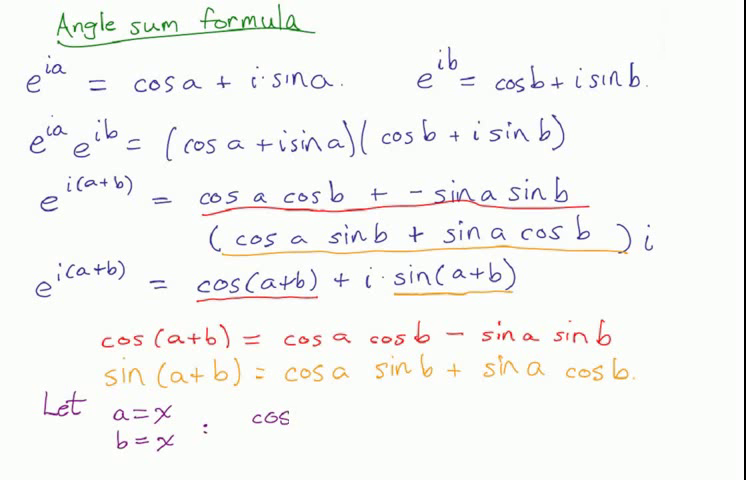 Angle sum formula
e^{ia} = cos a + i · sin a. e^{ib} = cos b + i sin b.
e^{ia} e^{ib} = (cos a + i sin a)(cos b + i sin b)
e^{i(a+b)} = cos a cos b + - sin a sin b
(cos a sin b + sin a cos b) i
e^{i(a+b)} = cos(a+b) + i · sin(a+b)
cos (a+b) = cos a cos b - sin a sin b
sin (a+b) = cos a sin b + sin a cos b.
Let a = x : cos
b = x